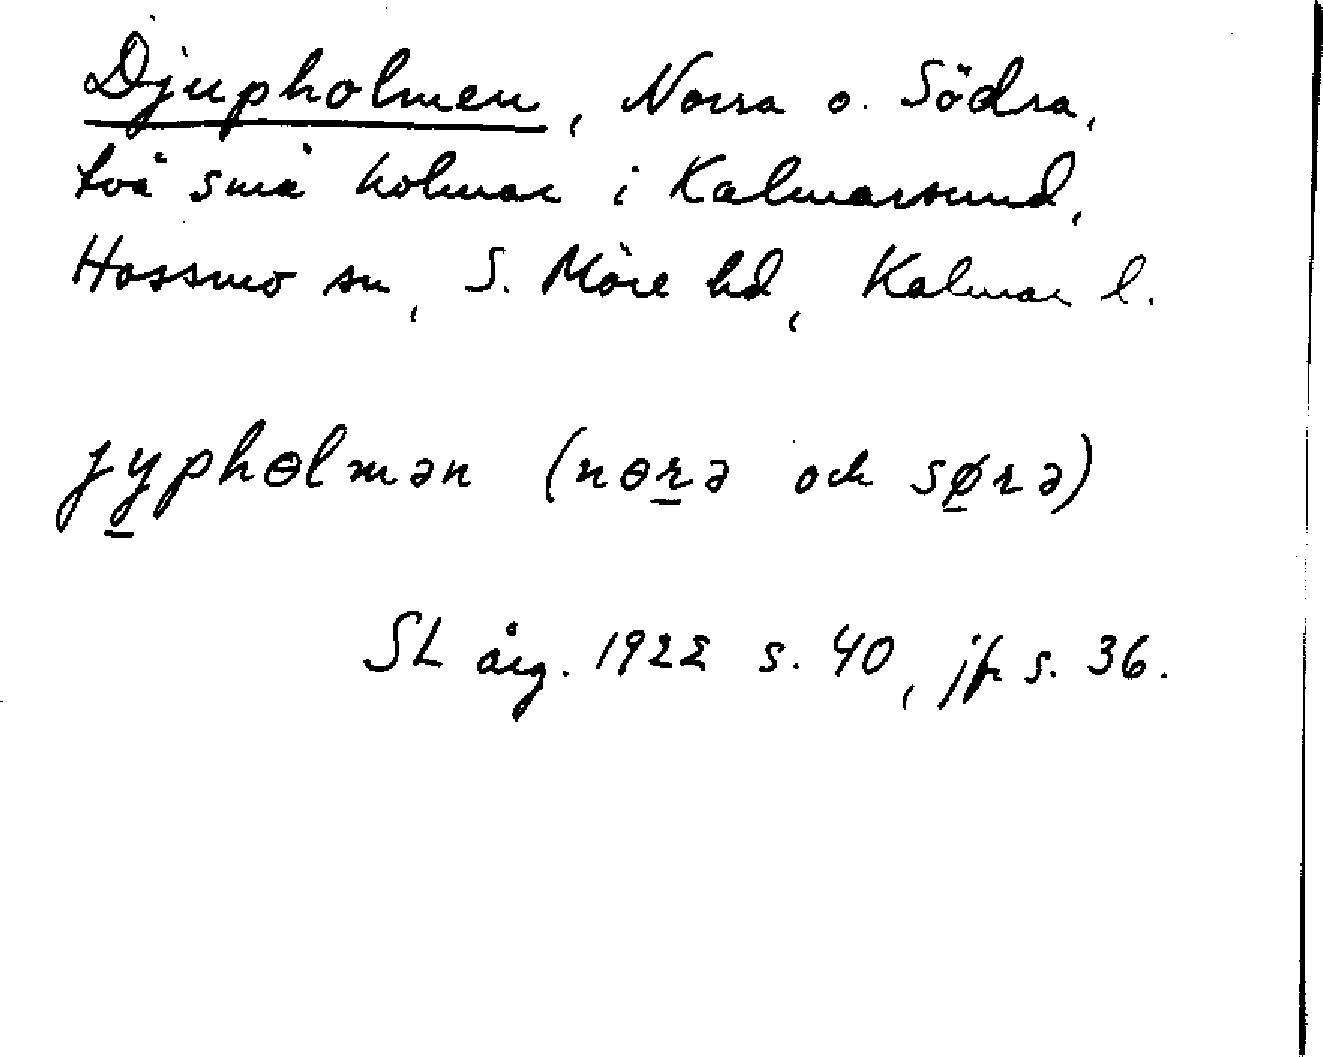 Djupholmen, Norra o. Södra,
två små holmar i Kalmarsund,
Hossmo sn, S. Möre hd, Kalmar l.
jy̲phɵlmən (nɵr̲ə och sø̲rə)
SL årg. 1922 s. 40, jfr s. 36.